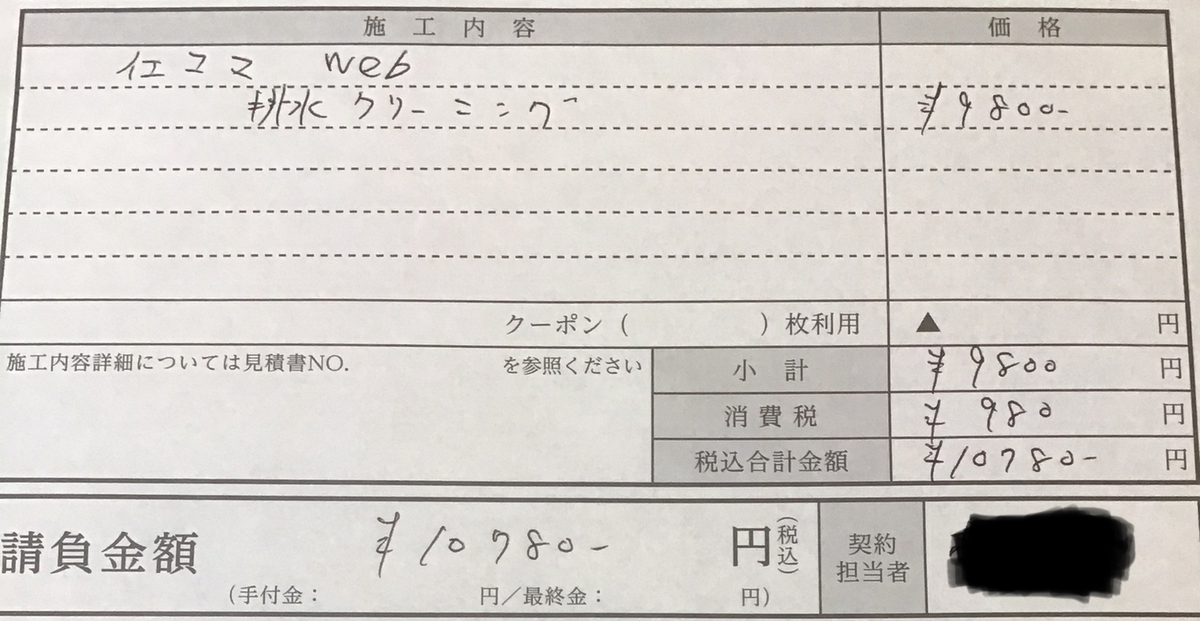 施工内容 価格
イエコマ Web
排水クリーニング ¥9800-
クーポン( )枚利用 ▲ 円
施工内容詳細については見積書NO. を参照ください
小計 ¥9800 円
消費税 ¥980 円
税込合計金額 ¥10780- 円
請負金額 ¥10780- 円(税込)
契約担当者
(手付金: 円/最終金: 円)